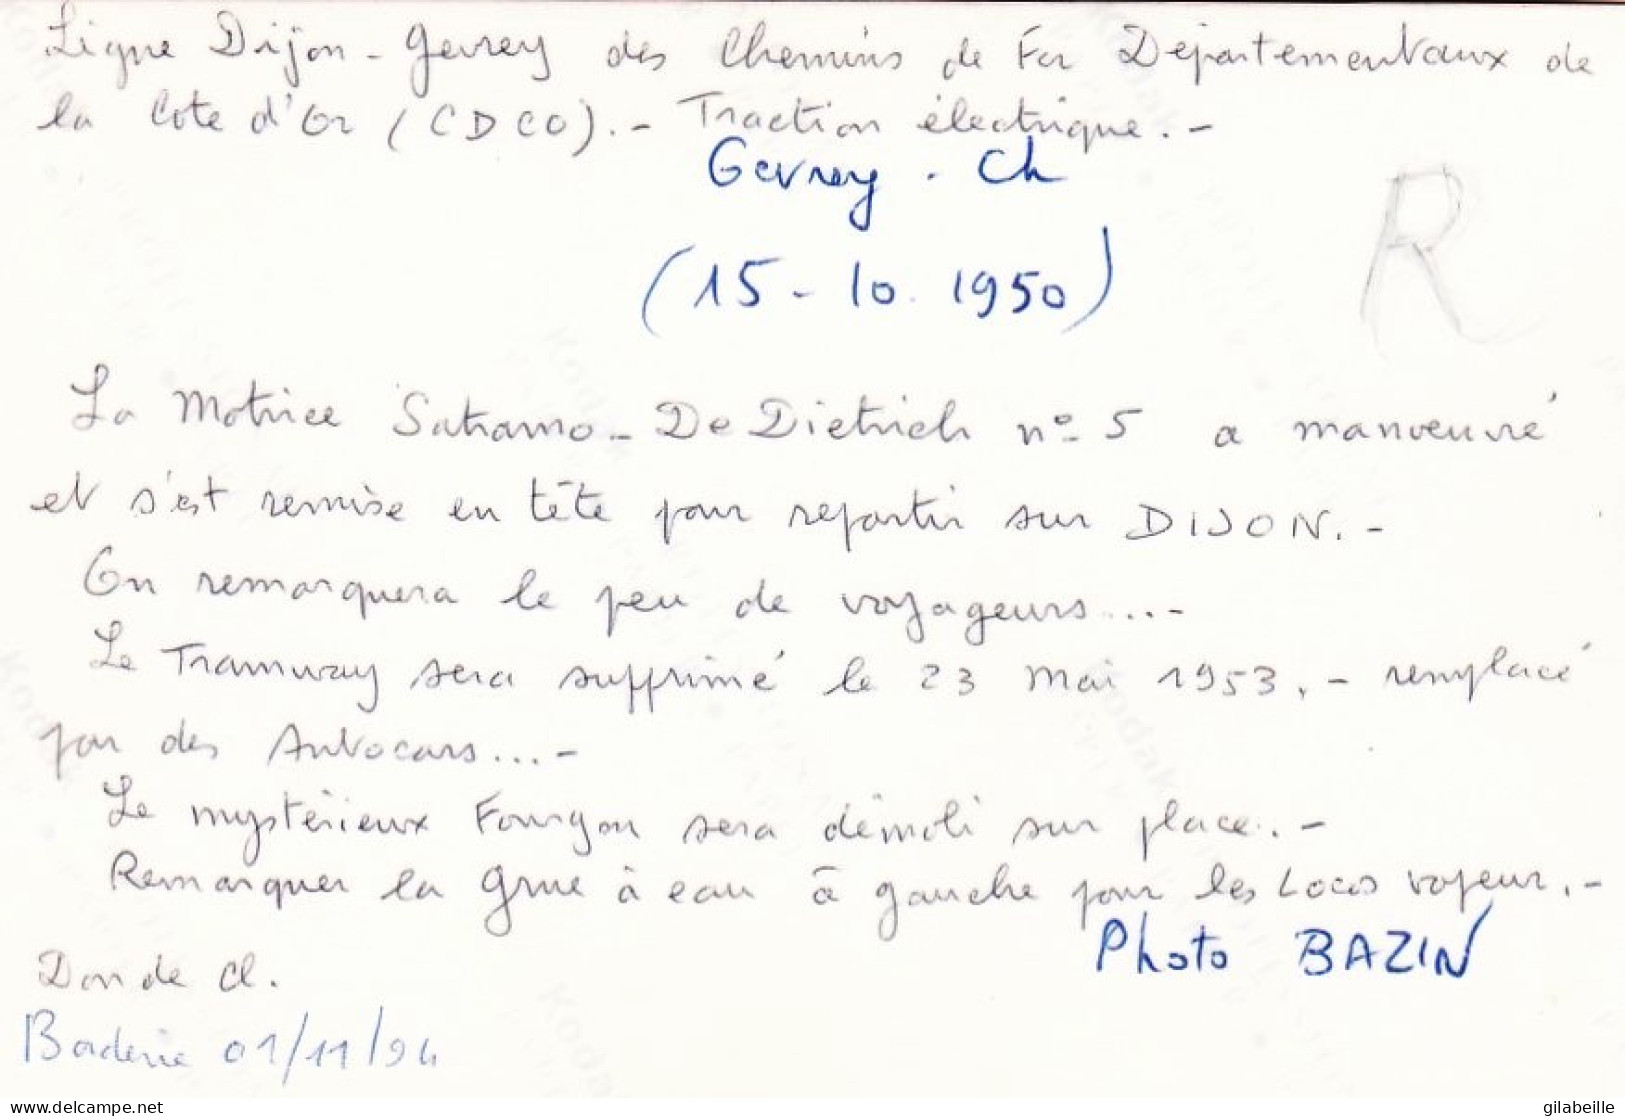 Ligne Dijon - Gevrey des Chemins de Fer Départementaux de
la Cote d'Or (CDCO). - Traction électrique. -
Gevrey. Ch
(15 - 10. 1950)
R
La Motrice Satramo - De Dietrich n° 5 a manoeuvré
et s'est remise en tête pour repartir sur DIJON. -
On remarquera le peu de voyageurs... -
Le Tramway sera supprimé le 23 Mai 1953. - remplacé
par des Autocars... -
Le mystérieux Fourgon sera démoli sur place. -
Remarquer la grue à eau à gauche pour les Locos vapeur. -
Photo BAZIN
Don de Cl.
01/11/94
www.delcampe.net
gilabeille